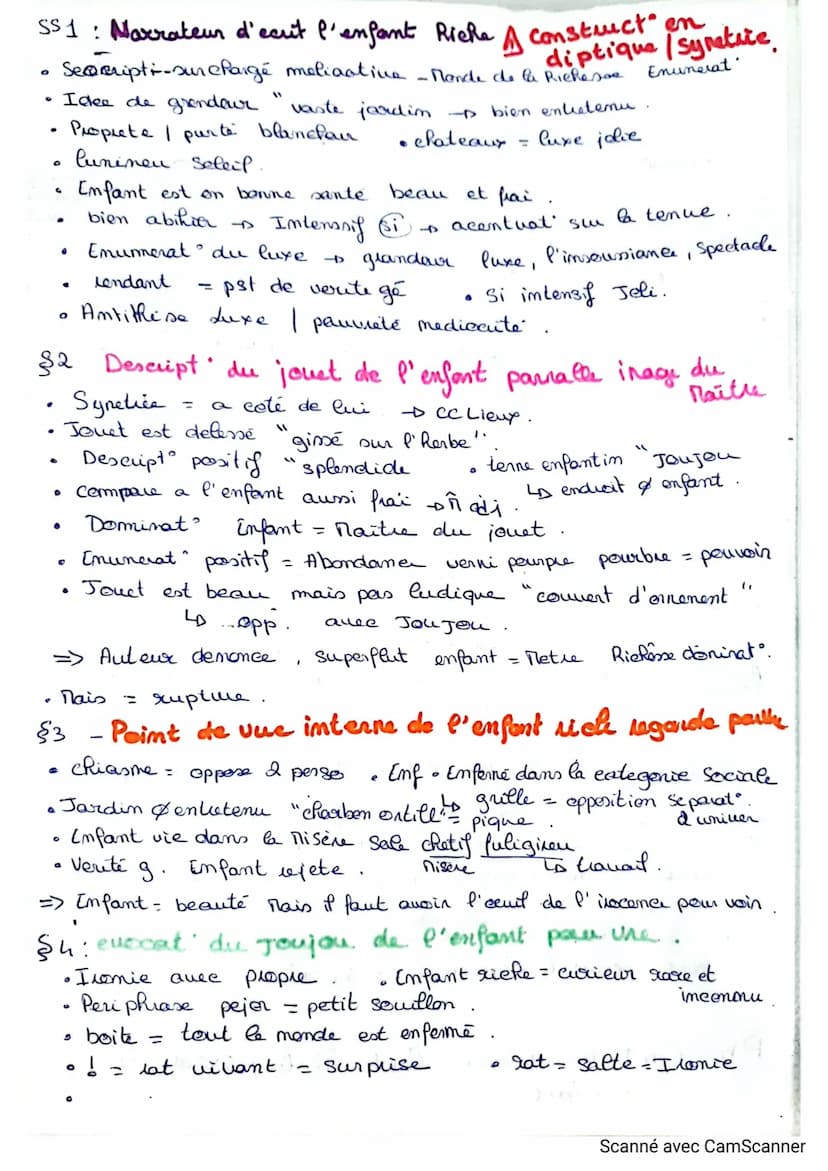 SS1 : Narrateur d'ecrit l'enfant Riche ⚠ construct° en
diptique / symetrie.
• Description surchargé meliactive - Monde de la Richesse Enumerat°
• Idee de grandeur "vaste jardin → bien entretenu.
• Proprete / purté blancheur • chateaux = luxe jolie
• lumineu Soleil.
• Enfant est en bonne santé beau et frai.
• bien abiller → Intensif (si) → acentuat° sur la tenue.
• Enummerat° du luxe → grandeur luxe, l'insousiance, Spectacle
• rendant = pst de verite gé • si intensif Joli.
• Antithèse Luxe / pauvreté mediocrité.
§2 Descript° du jouet de l'enfant parralle image du
Maître
• Symetrie = a coté de lui → CC Lieux.
• Jouet est delessé "gissé sur l'Herbe".
• Descript° positif "splendide • terme enfantin "Joujou
• compare a l'enfant aussi frai → m̂ adj. ↳ endroit ∅ enfant.
• Dominat° Enfant = Maître du jouet.
• Enumerat° positif = Abondance verni pourpre pourbre = pouvoir
• Jouet est beau mais pas ludique "couvert d'ornement"
↳ opp. avec Joujou.
=> Auteur denonce, superflut enfant = Metre Richesse dominat°.
• Mais = rupture.
§3 - Point de vue interne de l'enfant rich regarde pauvre
• chiasme = oppose 2 persos • Enf • Enfermé dans la categorie Sociale
• Jardin ∅ entretenu "charbon ortille" ↳ grille = opposition separat°
= pique. d'univer
• Enfant vie dans la Misère Sale chetif fuligineu
• Verité g. Enfant rejete. Misère ↳ travail.
=> Enfant = beauté Mais il faut avoir l'oeuil de l'inocence pour voir.
§4 : evocat° du Joujou de l'enfant pauvre.
• Ironie avec propre. • Enfant riche = curieux rare et
inconnu
• Peri phrase pejor = petit souillon.
• boite = tout le monde est enfermé.
• ! = rat vivant = surprise • rat = salte = Ironie
•
Scanné avec CamScanner